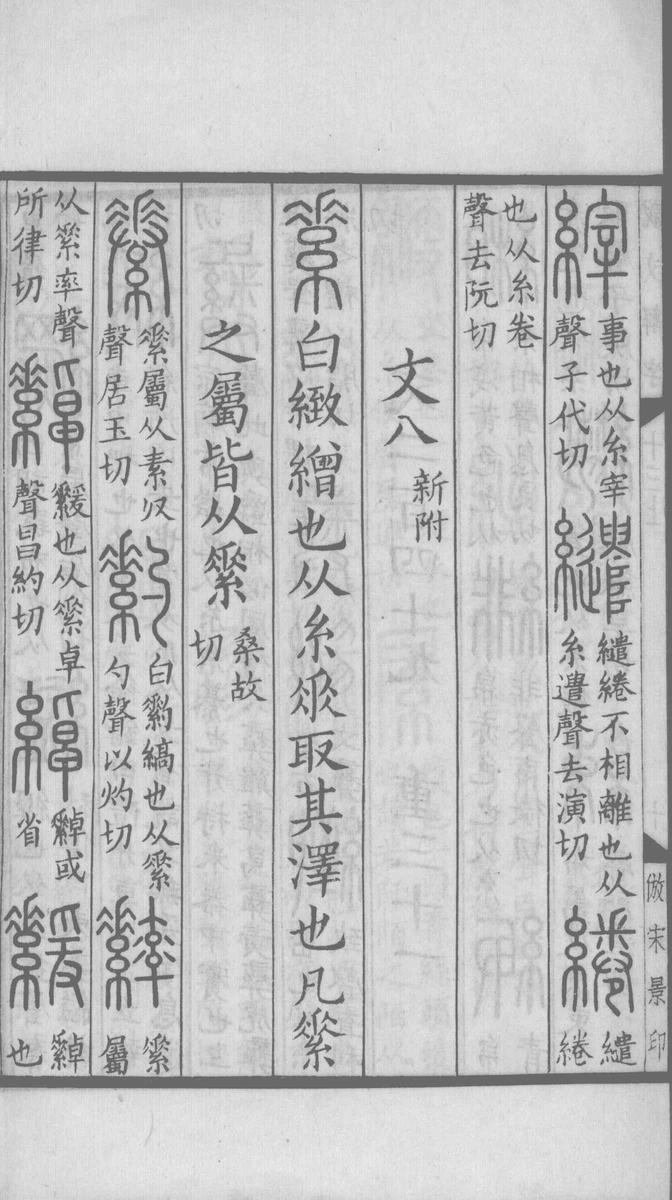 縡事也从糸宰聲子代切繾繾綣不相離也从糸遣聲去演切綣繾綣
也从糸卷聲去阮切
文八 新附
素白緻繒也从糸𠂹取其澤也凡素
之屬皆从素 桑故切
素屬从素 聲居玉切 白 縞也从素勺聲以灼切 素屬
从素率聲所律切 也从素卓聲昌約切綽 或省 也
倣宋景印